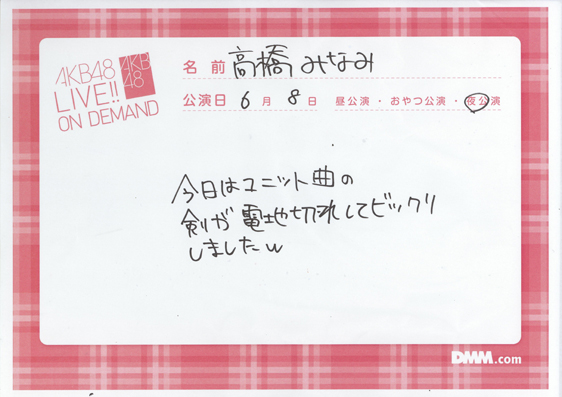 AKB48
LIVE!!
ON DEMAND
AKB
48
名前 高橋みなみ
公演日 6月8日 昼公演・おやつ公演・夜公演
今日はユニット曲の
剣が電池切れしてビックリ
しましたw
DMM.com